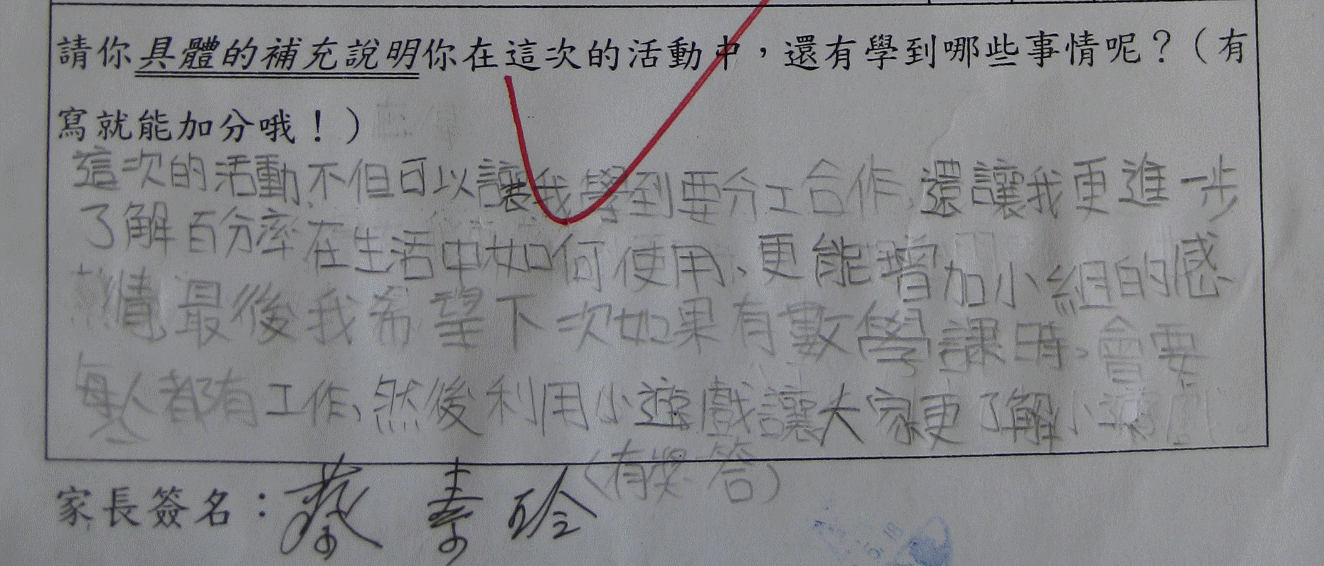 請你具體的補充說明你在這次的活動中，還有學到哪些事情呢？（有
寫就能加分哦！）
這次的活動不但可以讓我學到要分工合作，還讓我更進一步
了解百分率在生活中如何使用、更能增加小組的感
情最後我希望下次如果有數學課時，會要
每人都有工作、然後利用小遊戲讓大家更了解小遊戲
（有獎答）
家長簽名：蔡